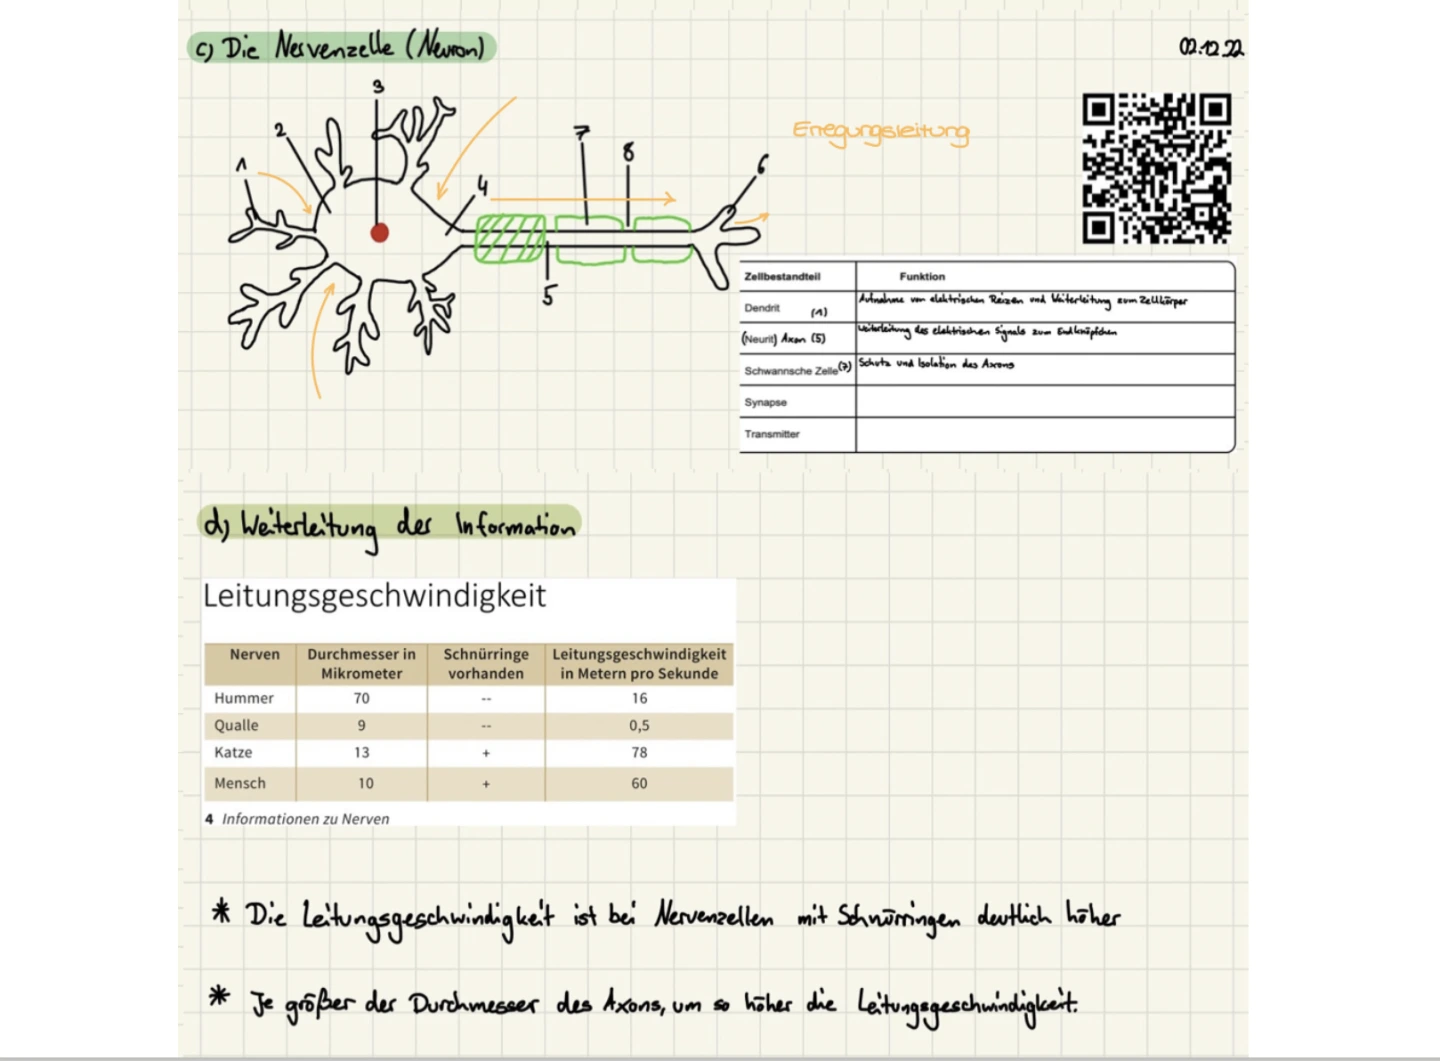 c) Die Nervenzelle (Neuron)
02.12.22
3
2
1
7
8
6
4
5
Erregungsleitung
Zellbestandteil Funktion
Dendrit (1) Aufnahme von elektrischen Reizen und Weiterleitung zum Zellkörper
(Neurit) Axon (5) Weiterleitung des elektrischen Signals zum Endknöpfchen
Schwannsche Zelle (7) Schutz und Isolation des Axons
Synapse
Transmitter
d) Weiterleitung der Information
Leitungsgeschwindigkeit
Nerven Durchmesser in Mikrometer Schnürringe vorhanden Leitungsgeschwindigkeit in Metern pro Sekunde
Hummer 70 -- 16
Qualle 9 -- 0,5
Katze 13 + 78
Mensch 10 + 60
4 Informationen zu Nerven
* Die Leitungsgeschwindigkeit ist bei Nervenzellen mit Schnürringen deutlich höher
* Je größer der Durchmesser des Axons, um so höher die Leitungsgeschwindigkeit.